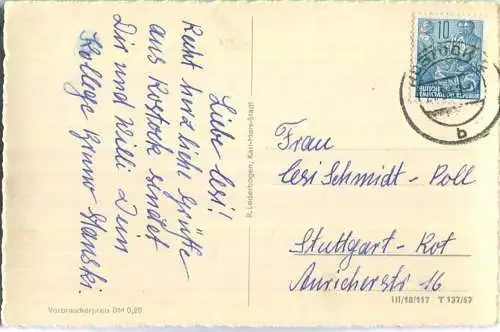 Liebe Lesi!
Recht herzliche Grüße
aus Rostock sendet
Dir und Willi Dein
Kollege Bruno Stanski.
Verbraucherpreis DM 0,20
R. Lederbogen, Karl-Marx-Stadt
10
DEUTSCHE
DEMOKRATISCHE REPUBLIK
b
Frau
Lesi Schmidt-Poll
Stuttgart-Rot
Auricherstr. 16
III/18/117 T 137/57